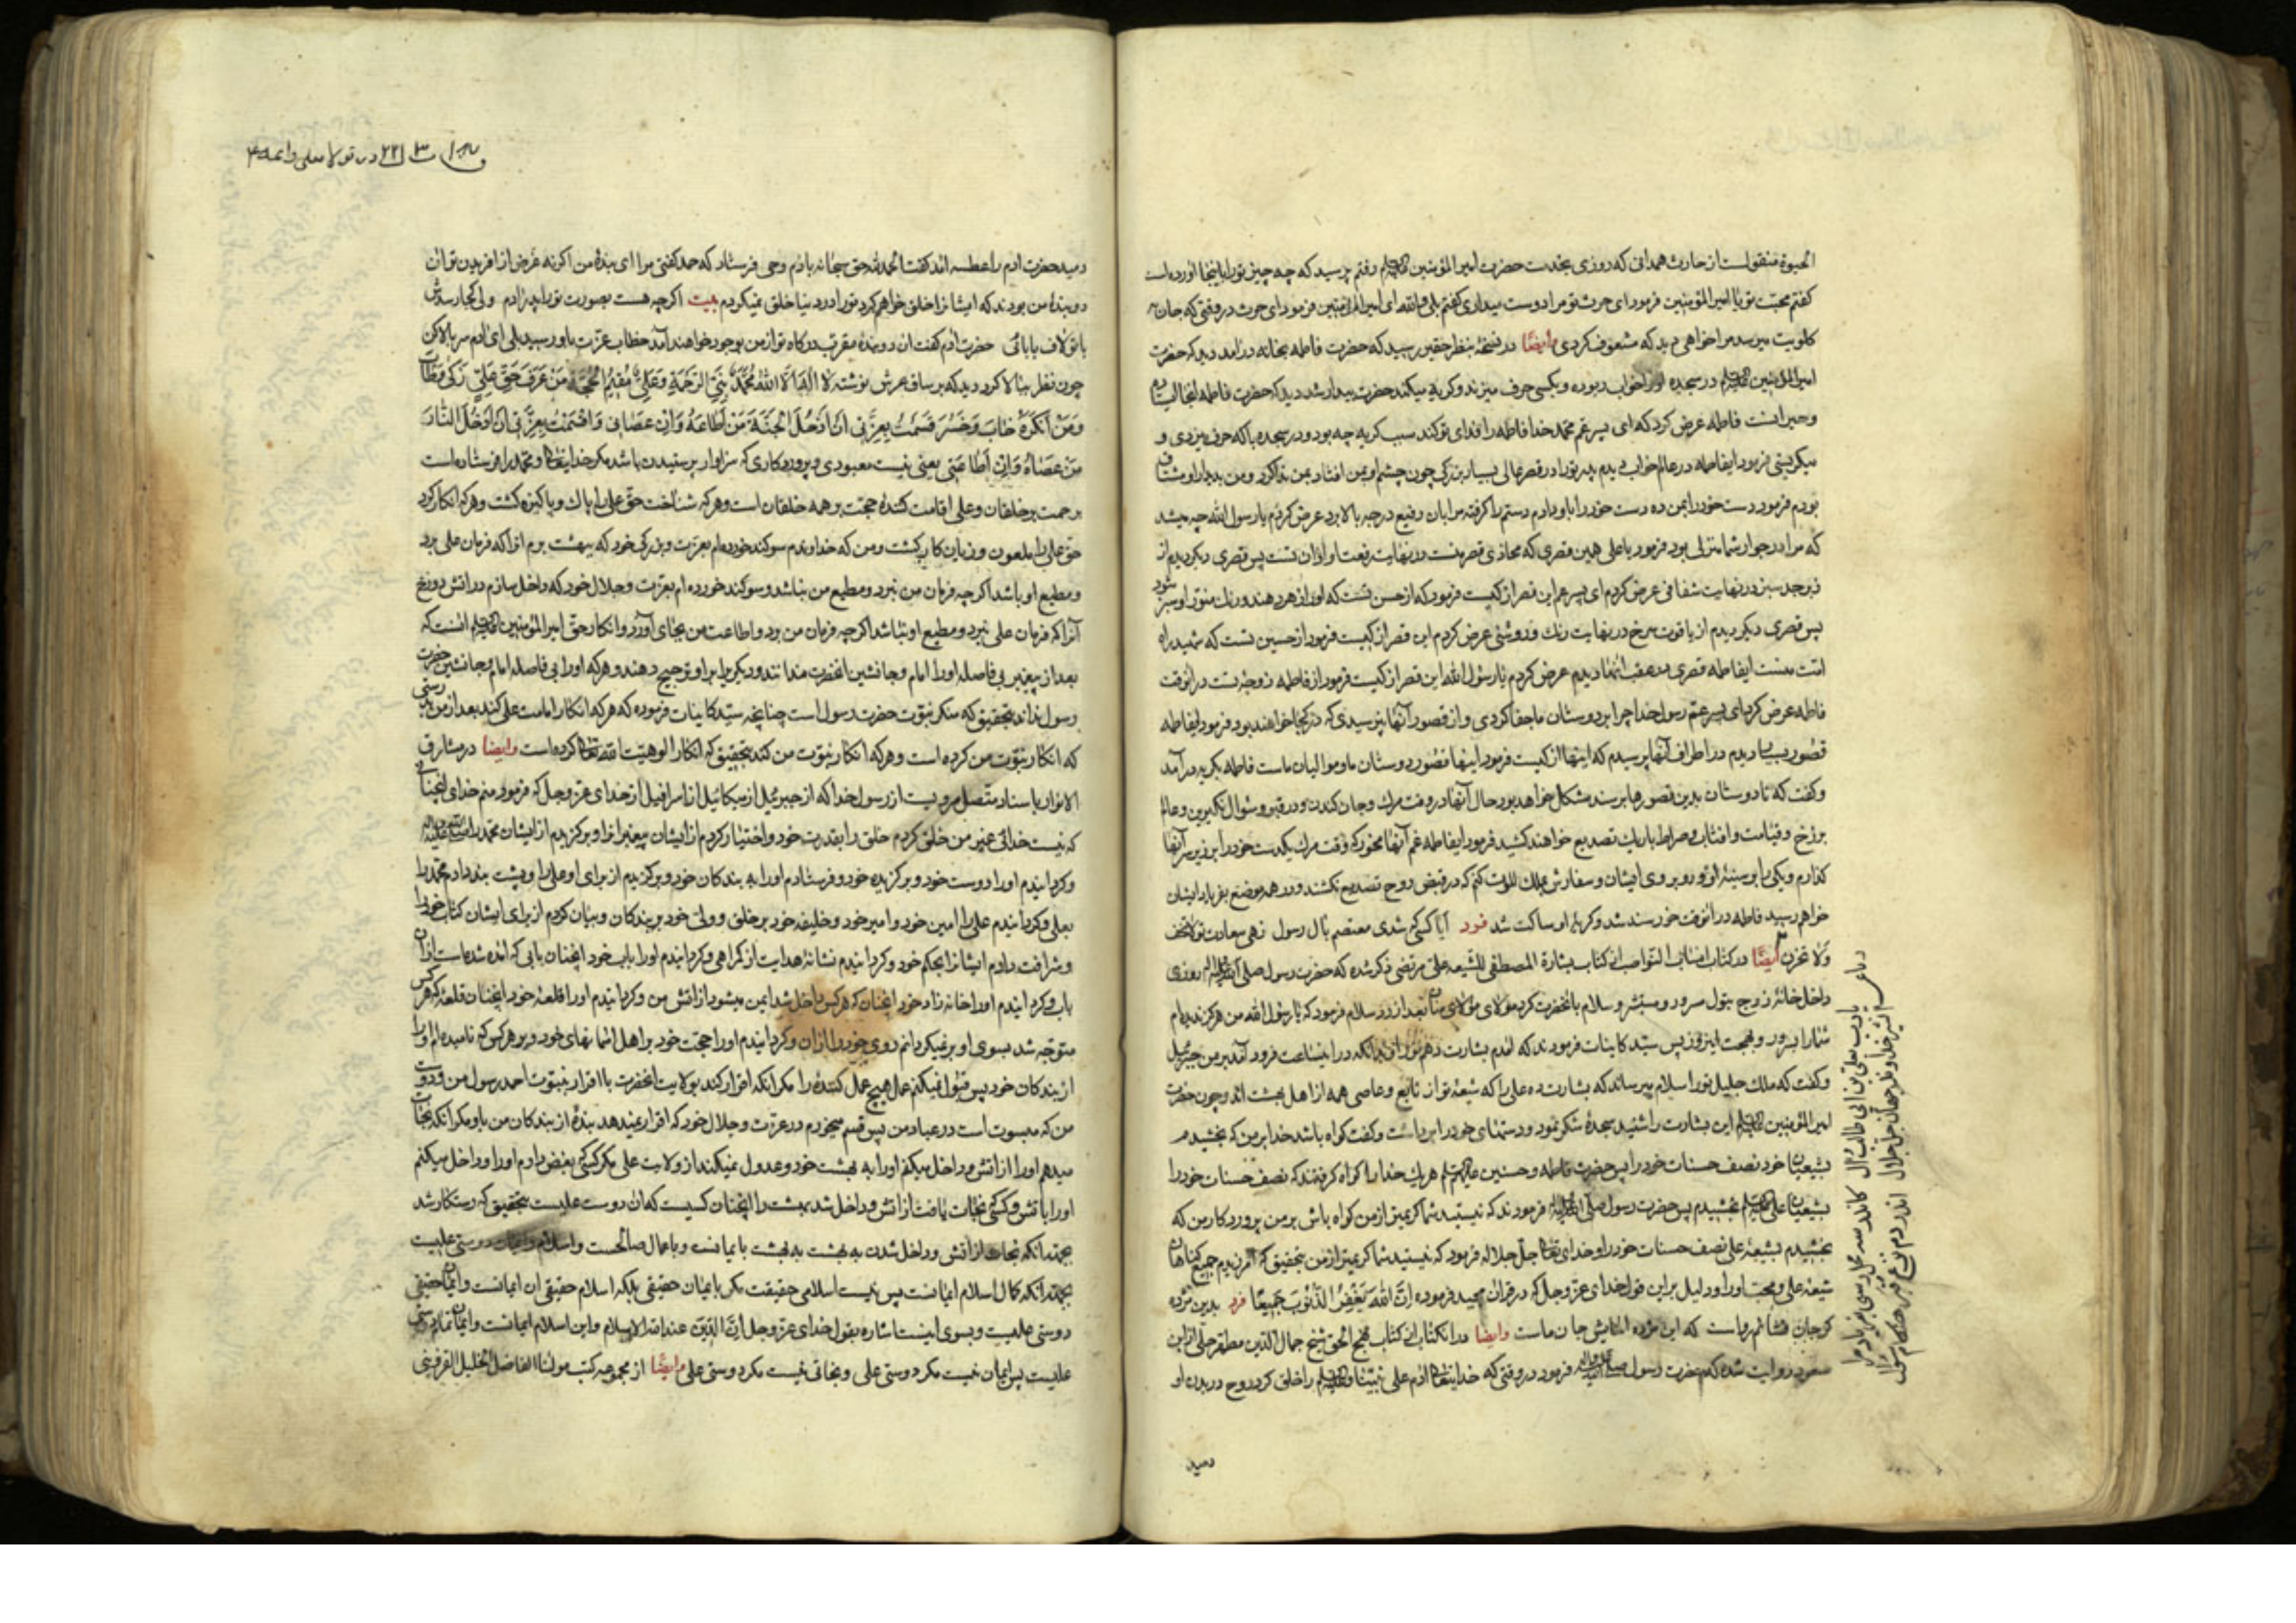 الحیوة منقولست از حارث همدانی که روزی بخدمت حضرت امیر المؤمنین علیه السلام رفتم پرسید که چه چیز تو را باینجا آورده است
کفتم محبت تو یا امیر المؤمنین فرمود ای حرث تو مرا دوست میداری کفتم بلی والله ای امیر المؤمنین فرمود ای حرث در وقتی که جان
کلویت میرسد مرا خواهی دید که مشعوف کردی وایضًا در نسخهٔ بنظر حقیر رسید که حضرت فاطمه بخانه درآمد دید که حضرت
امیر المؤمنین علیه السلام در سجده او را خواب ربوده و بکسی حرف میزند و کریه میکند حضرت بیدار شد دید که حضرت فاطمه
و حیرانست فاطمه عرض کرد که ای پسر عم محمد خدا فاطمه را فدای تو کند سبب کریه چه بود و در سجده با که حرف میزدی و
میکریستی فرمود ایفاطمه در عالم خواب دیدم پدر تو را در قصر عالی بسیار بزرکی چون چشم او بمن افتاد بمن ندا کرد و من بدیدار او مشتاق
بودم فرمود دست خود را بمن ده دست خود را باو دادم دستم را کرفته مرا بان رفیع درجه بالا برد عرض کردم یا رسول الله چه میشد
که مرا در جوار شما منزلی بود فرمود یا علی همین قصری که محاذی قصر منست در نهایت رفعت او از آن تست پس قصری دیکر دیدم از
زبرجد سبز در نهایت شفافی عرض کردم ای پسر عم این قصر از کیست فرمود که از حسن تست که او را زهر دهند و رنک منور او سبز شود
پس قصری دیکر دیدم از یاقوت سرخ در نهایت رنک و روشنی عرض کردم این قصر از کیست فرمود از حسین تست که شهید راه
امت منست ایفاطمه قصری در عقب آنها دیدم عرض کردم یا رسول الله این قصر از کیست فرمود از فاطمه زوجهٔ تست در انوقت
فاطمه عرض کرد ای پسر عم رسول خدا چرا بر دوستان ما جفا کردی و از قصور آنها نپرسیدی که در کجا خواهند بود فرمود ایفاطمه
قصور بسیار دیدم در اطراف آنها پرسیدم که اینها از کیست فرمود اینها قصور دوستان ما و موالیان ماست فاطمه بکریه درآمد
و کفت که تا دوستان بدین قصورها برسند مشکل خواهد بود حال آنها در وقت مرک و جان کندن و در قبر و سؤال نکیرین و عالم
برزخ و قیامت و افتاب و صراط باریک تصدیع خواهند کشید فرمود ایفاطمه غم آنها مخور که وقت مرک یکدست خود را بر زیر سر آنها
کذارم و یکی را بر سینهٔ او و رو بروی ایشان و سفارش بملک الموت کنم که در قبض روح تصدیع نکشند و در همه موضع بفریاد ایشان
خواهم رسید فاطمه در انوقت خورسند شد و کریهٔ او ساکت شد فرد آیا کسی که شدی معتصم بال رسول زهی سعادت تو لا تخف
ولا تحزن ایضًا در کتاب از کتاب بشارة المصطفی للشیعه علی مرتضی ذکر شده که حضرت رسول صلی الله علیه و آله روزی
داخل خانهٔ زوج بتول سرور و مبشر و سلام بانحضرت کرد مولای مولای بعد از رد سلام فرمود که یا رسول الله من هرکز ندیدهام
شما را بسرور و بهجت امروز پس سید کاینات فرمودند که امدم بشارت دهم تو را بدانکه در اینساعت فرود آمد بر من جبرئیل
و کفت که ملک جلیل تو را سلام میرساند که بشارت ده علی را که شیعهٔ تو از تابع و عاصی همه از اهل بهشت اند و چون حضرت
امیر المؤمنین علیه السلام این بشارت را شنید سجدهٔ شکر نمود و دستهای خود را برداشت و کفت کواه باشد خدا بر من که بخشیدم
بشیعیان خود نصف حسنات خود را پس حضرت فاطمه و حسنین علیهم السلام هر یک خدا را کواه کرفتند که نصف حسنات خود را
بشیعیان علی علیه السلام بخشیدم پس حضرت رسول صلی الله علیه و آله فرمودند که نیستید شما کریمتر از من کواه باش بر من پروردکار من که
بخشیدم بشیعهٔ علی نصف حسنات خود را و خدای تعالی جل جلاله فرمود که نیستید شما کریمتر از من بتحقیق که آمرزیدم جمیع کناهان
شیعهٔ علی و محب او را و دلیل بر این قول خدای عز و جل که در قرآن مجید فرموده اِنَّ اللهَ یَغفِرُ الذُّنُوبَ جَمیعًا فرد بدین مژده
کر جان فشانم رواست که این مژده اسایش جان ماست وایضا در انکتاب از کتاب نهج الحق شیخ جمال الدین مطهر حلی از ابن
مسعود روایت شده که حضرت رسول صلی الله علیه و آله فرمود در وقتی که خدایتعالی ادم علی نبینا وعلیه السلام را خلق کرد و روح در بدن او
دمید
رباعی
یا رب بعلی بن ابی طالب و آل
اندر دم نزع قبر هنکام سؤال
در تولا بعلی و ائمه
دمید حضرت ادم را عطسه امد کفت الحمد لله حق سبحانه بادم وحی فرستاد که حمد کفتی مرا ای بندهٔ من اکر نه غرض از افریدن تو آن
دو بندهٔ من بودند که ایشانرا خلق خواهم کرد تو را در دنیا خلق نمیکردم بیت اکرچه هست بصورت تو را پدر ادم ولی کجا رسدش
با تو لاف بابائی حضرت ادم کفت ان دو بندهٔ مقرب درکاه تو از من بوجود خواهند آمد خطاب عزت باو رسید بلی ای ادم سر بالا کن
چون نظر ببالا کرد دید که بر ساق عرش نوشته لا اله الا الله محمد نبی الرحمة وعلی مقیم الحجة من عرف حق علی زکی وطاب
ومن انکره خاب وخسر قسمت بعزتی ان ادخل الجنة من اطاعه وان عصانی واقسمت بعزتی ان ادخل النار
من عصاه وان اطاعنی یعنی نیست معبودی و پروردکاری که سزاوار پرستیدن باشد مکر خدایتعالی و محمد را فرستاده است
برحمت بر خلقان و علی اقامت کنندهٔ حجت بر همه خلقان است و هر که شناخت حق علی را پاک و پاکیزه کشت و هر که انکار کرد
حق علی را ملعون و زیان کار کشت و من که خداوندم سوکند خورده ام بعزت و بزرکی خود که ببهشت برم انرا که فرمان علی برد
و مطیع او باشد اکرچه فرمان من نبرد و مطیع من نباشد و سوکند خورده ام بعزت و جلال خود که داخل سازم در اتش دوزخ
آنرا که فرمان علی نبرد و مطیع او نباشد اکرچه فرمان من برد و اطاعت من بجای آورد و انکار حق امیر المؤمنین علیه السلام انست که
بعد از پیغمبر بی فاصله او را امام و جانشین انحضرت ندانند و دیکریرا بر او ترجیح دهند و هر که او را بی فاصله امام و جانشین حضرت
رسول نداند بتحقیق که منکر نبوت حضرت رسول است چنانچه سید کاینات فرموده که هر که انکار امامت علی کند بعد از من بدرستی
که انکار نبوت من کرده است و هر که انکار نبوت من کند بتحقیق که انکار الوهیت الله تعالی کرده است وایضا در مشارق
الانوار باسناد متصل مرویست از رسول خدا که از جبرئیل از میکائیل از اسرافیل از خدای عز و جل که فرمود منم خدای انچنانی
که نیست خدائی غیر من خلق کردم خلق را بقدرت خود و اختیار کردم از ایشان پیغمبرانرا و برکزیدم از ایشان محمد را صلی الله علیه و آله
و کردانیدم او را دوست خود و برکزیده خود و فرستادم او را به بندکان خود و برکزیدم از برای او علی را و پشت بند دادم محمد را
بعلی و کردانیدم علی را امین خود و امیر خود و خلیفه خود بر خلق و ولی خود بر بندکان و بیان کردم از برای ایشان کتاب خود را
و شرافت دادم ایشانرا بحکم خود و کردانیدم نشانهٔ هدایت از کمراهی و کردانیدم او را باب خود انچنان بابی که امده شده است از آن
باب و کردانیدم او را خانه زاد خود انچنان که هر کس داخل شد ایمن میشود از اتش من و کردانیدم او را قلعهٔ خود انچنان قلعهٔ که هر کس
متوجه شد بسوی او بر نمیکردانم روی خود را از ان و کردانیدم او را حجت خود بر اهل اسمانهای خود و بر هر کس که نامیده ام او را
از بندکان خود پس قبول نمیکنم عمل هیچ عمل کنندهٔ را مکر انکه اقرار کند بولایت انحضرت با اقرار بنبوت احمد رسول من
من که مبسوت است در عباد من پس قسم میخورم در عزت و جلال خود که اقرار نمیدهد بندهٔ از بندکان من باو مکر انکه نجات
میدهم او را از اتش و داخل میکنم او را به بهشت خود و عدول نمیکند از ولایت علی مکر کسی که بغض دارم او را و داخل میکنم
او را باتش و کسی که نجات یافت از اتش و داخل شد بهشت را انچنان کسیست که ان دوست علیست بتحقیق که رستکار شد
بجهة انکه نجات از اتش و داخل شدن به بهشت بایمانست و باعمال صالحست و اسلام و ایمان دوستی علیست
بجهة انکه کمال اسلام ایمانست پس نیست اسلامی حقیقت مکر بایمان حقیقی بلکه اسلام حقیقی ان ایمانست و ایمان حقیقی
دوستی علیست و بسوی اینست اشاره بقول خدای عز و جل ان الدین عند الله الاسلام و این اسلام ایمانست و ایمان تمام دوستی
علیست پس ایمان نیست مکر دوستی علی و نجاتی نیست مکر دوستی علی وایضًا از مجموعه کتب مولانا الفاضل الخلیل القزوینی